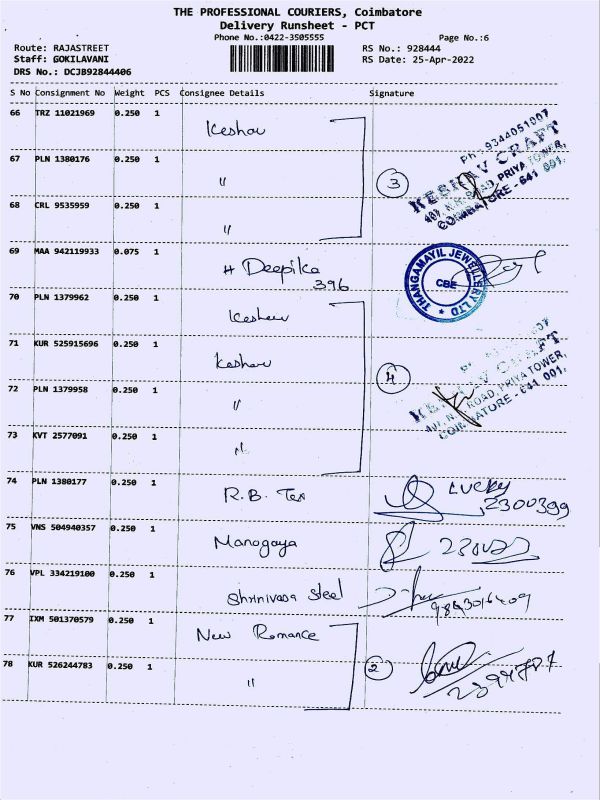 THE PROFESSIONAL COURIERS, Coimbatore
Delivery Runsheet - PCT
Phone No.:0422-3505555 Page No.:6
Route: RAJASTREET RS No.: 928444
Staff: GOKILAVANI RS Date: 25-Apr-2022
DRS No.: DCJB92844406
S No Consignment No Weight PCS Consignee Details Signature
66 TRZ 11021969 0.250 1 Keshav
Ph : 9344051907
67 PLN 1380176 0.250 1 "
3 KESHAV CRAFT
407, N.H. ROAD, PRIYA TOWER,
COIMBATORE - 641 001.
68 CRL 9535959 0.250 1 "
69 MAA 942119933 0.075 1 # Deepika
396
THANGAMAYIL JEWELLERY LTD
CBE
70 PLN 1379962 0.250 1 Keshav
71 KUR 525915696 0.250 1 Keshav
4 KESHAV CRAFT
ROAD, PRIYA TOWER,
COIMBATORE - 641 001.
72 PLN 1379958 0.250 1 "
73 KVT 2577091 0.250 1 "
74 PLN 1380177 0.250 1 R.B. Tex Lucky
2300399
75 VNS 504940357 0.250 1 Manogaya
76 VPL 334219100 0.250 1 Shrinivasa Steel
77 IXM 501370579 0.250 1 New Romance
78 KUR 526244783 0.250 1 " 2